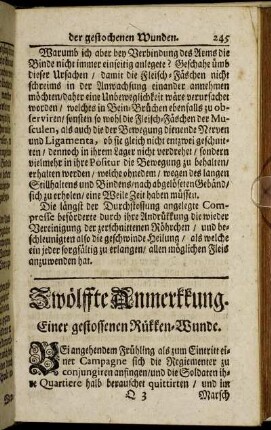 der gestochenen Wunden. 245
Warumb ich aber bey Verbindung des Arms die
Binde nicht immer einseitig anlegete? Geschahe umb
dieser Ursachen / damit die Fleisch-Fäschen nicht
schreims in der Anwachsung einander annehmen
möchten/daher ein Unbeweglichkeit wäre verursachet
worden / welches in Bein-Brüchen ebenfalls zu ob-
serviren/ sonsten so wohl die Fleisch-Fäschen der Mu-
sculen, als auch die der Bewegung dienende Nerven
und Ligamenta, ob sie gleich nicht entzwey geschnit-
ten / dennoch in ihrem Lager nicht verdrehet / sondern
vielmehr in ihre Positur die Bewegung zu behalten/
erhalten werden / welche ohnedem / wegen des langen
Stillhaltens und Bindens/nach abgelöseten Gebänd/
sich zu erholen / eine Weile Zeit haben müssen.
Die längst der Durchstossung angelegte Com-
presse beförderte durch ihre Andrükkung die wieder
Vereinigung der zerschnittenen Röhrchen / und be-
schleunigten also die geschwinde Heilung / als welche
ein jeder sorgfältig zu erlangen/ allen möglichen Fleis
anzuwenden hat.
Zwölffte Anmerkkung.
Einer gestossenen Rükken-Wunde.
BEi angehendem Frühling als zum Eintritt ei-
ner Campagne sich die Regiementer zu
conjungiren anfingen/und die Soldaten ih-
re Quartiere halb berauschet quittirten / und im
Q 3 Marsch